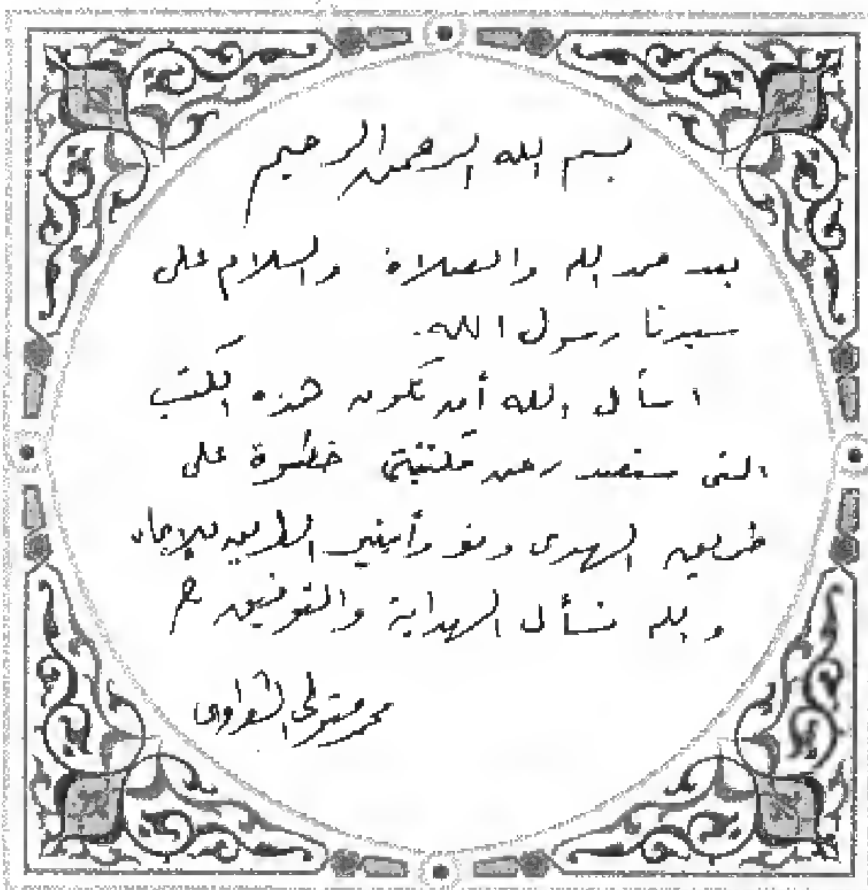 بسم الله الرحمن الرحيم
بعد حمد الله والصلاة والسلام على
سيدنا رسول الله.
اسأل الله أن تكون هذه الكتب
التى ستصدر عن مكتبتى خطوة على
طريق الهدى ونورا ينير الطريق للإيمان
والله نسأل الهداية والتوفيق
محمد متولى الشعراوى